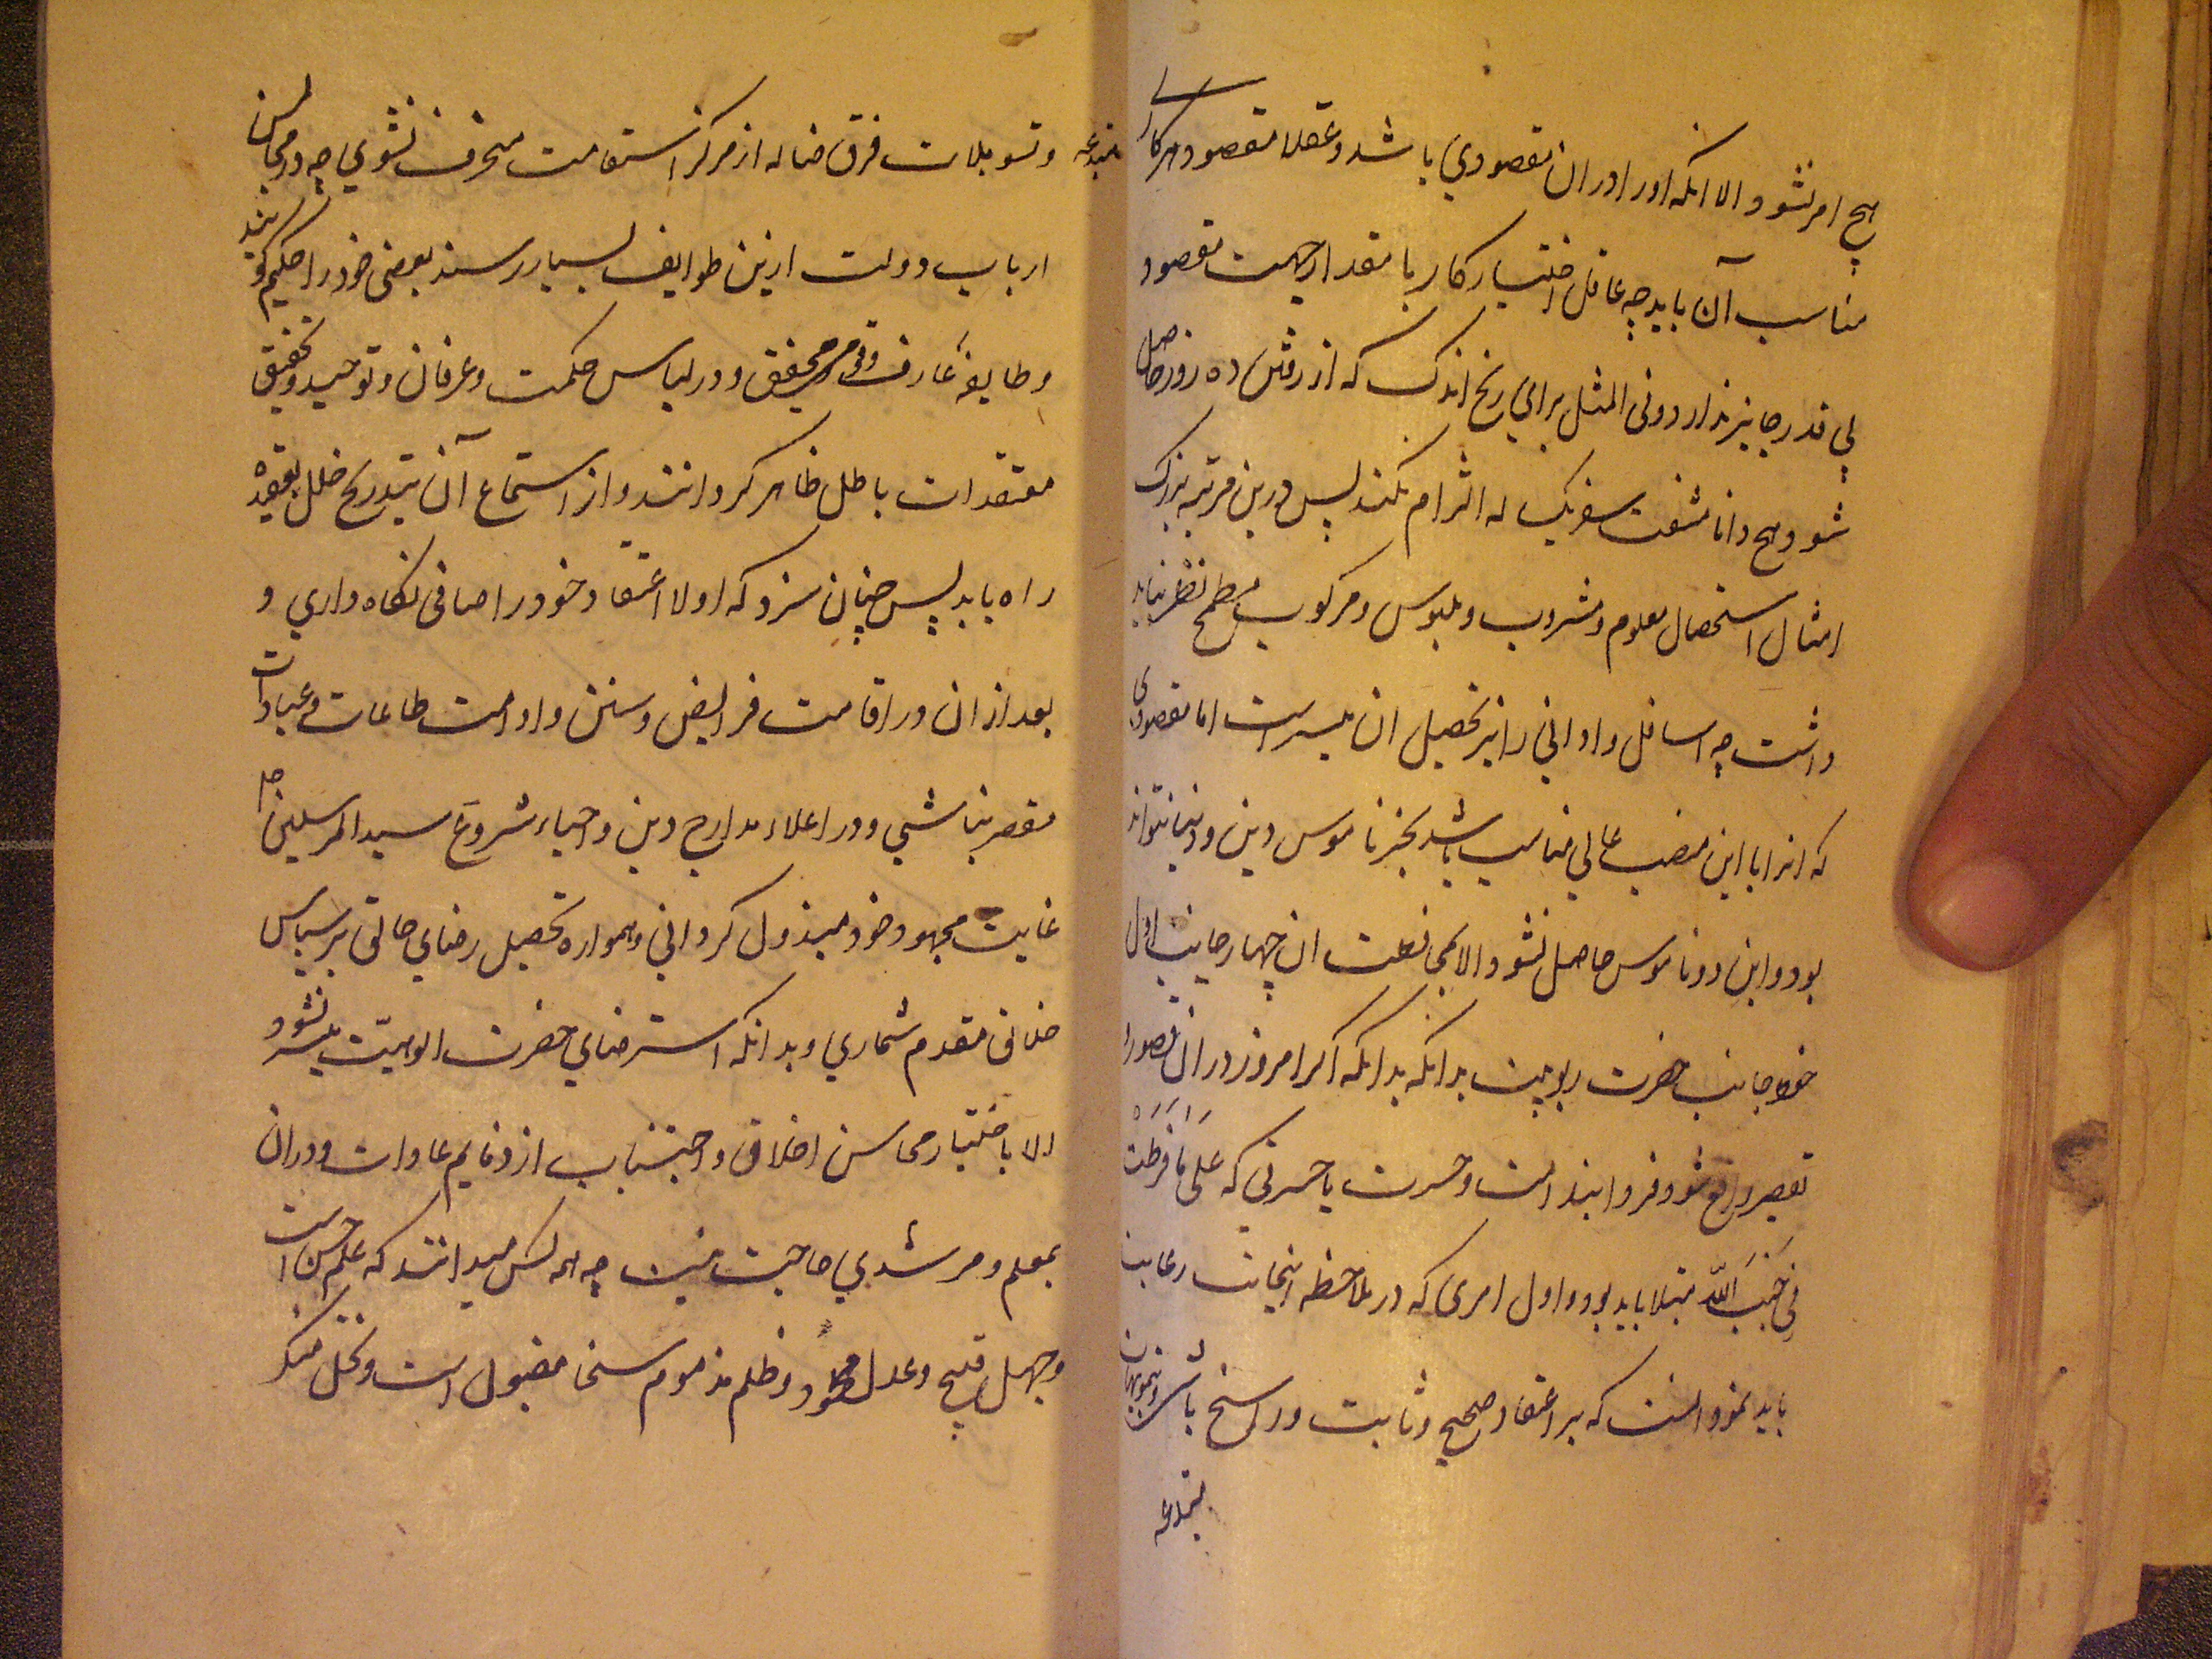 هیچ امر نشود الا انکه او را در ان مقصودی باشد و عقلا مقصود هر کار
مناسب آن باید چه عاقل اختیار کار با مقدار جهت مقصود
بی قدر جایز ندارد و فی المثل برای رنج اندک که از رفتن ده روز حاصل
شود هیچ دانا مشقت سفر یک له التزام نکند پس درین مرتبه بزرک
امثال استحصال مطعوم و مشروب و ملبوس و مرکوب مطمح نظر نباید
داشت چه اسافل و ادانی را نیز تحصیل ان میسر است اما مقصودی
که انرا با این منصب عالی مناسب باشد بجز ناموس دین و دنیا نتواند
بود و این دو ناموس حاصل نشود الا بمحافظت ان چهار جانب اول
خود جانب حضرت ربوبیت بدانکه بدانکه اکر امروز در ان قصور و
تقصیر واقع شود فردا بندامت و حسرت یا حسرتی که عَلی مَا فَرَّطْتُ
فِی جَنْبِ اللّه مبتلا باید بود و اول امری که در ملاحظه اینجانب رعایت
باید نمود انست که بر اعتقاد صحیح و ثابت و راسخ باشی و بتمویهات
مبتدعه
مبتدعه و تسویلات فرق ضاله از مرکز استقامت منحرف نشوی چه در مجالس
ارباب دولت ازین طوایف بسیار رسند بعضی خود را حکیم کویند
و طایفه عارف و قومی محقق و در لباس حکمت و عرفان و توحید و تحقیق
معتقدات باطل ظاهر کردانند و از استماع آن بتدریج خلل بعقیده
راه یابد پس چنان سزد که اولا اعتقاد خود را صافی نکاه داری و
بعد از ان در اقامت فرایض و سنن و ادامت طاعات و عبادات
مقصر نباشی و در اعلاء مدارج دین و احیاء شروع سید المرسلین
غایت مجهود خود مبذول کردانی و همواره تحصیل رضای خالق بر سپاس
خلایق مقدم شماری و بدانکه استرضای حضرت الوهیّت میسر نشود
الا باختیار محاسن اخلاق و اجتناب از ذمایم عادات و در ان
بمعلم و مرشدی حاجت نیست چه همه کس میدانند که علم حسن است
و جهل قبیح و عدل محمود و ظلم مذموم سخا مقبول است و بخل منکر